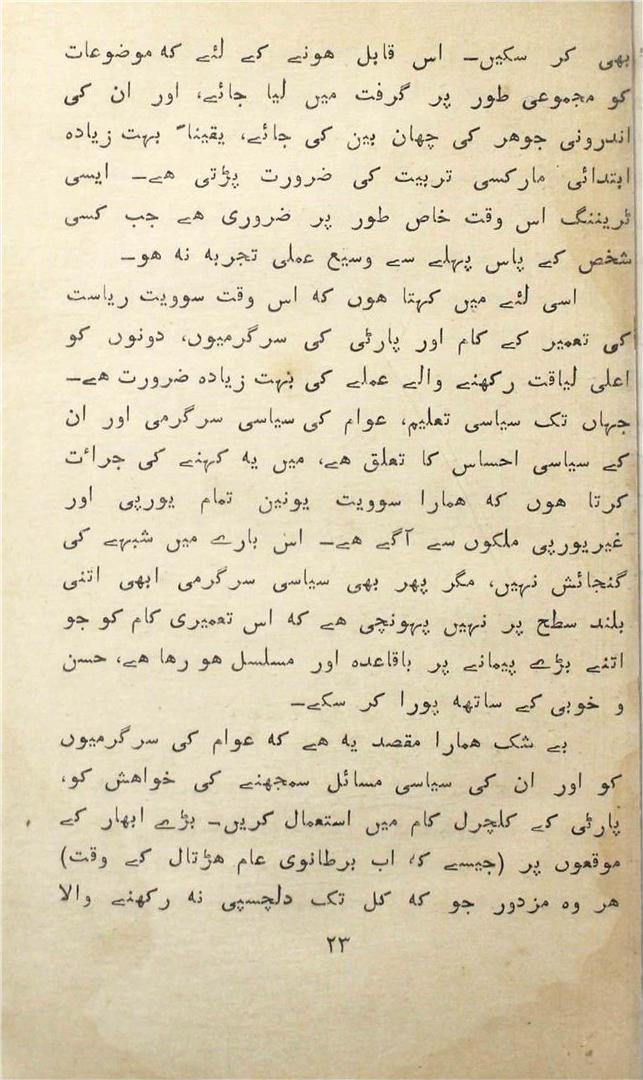 بھی کر سکیں۔ اس قابل ھونے کے لئے کہ موضوعات
کو مجموعی طور پر گرفت میں لیا جائے، اور ان کی
اندرونی جوھر کی چھان بین کی جائے، یقیناً بہت زیادہ
ابتدائی مارکسی تربیت کی ضرورت پڑتی ھے۔ ایسی
ٹریننگ اس وقت خاص طور پر ضروری ھے جب کسی
شخص کے پاس پہلے سے وسیع عملی تجربہ نہ ھو۔
اسی لئے میں کہتا ھوں کہ اس وقت سوویت ریاست
کی تعمیر کے کام اور پارٹی کی سرگرمیوں، دونوں کو
اعلی لیاقت رکھنے والے عملے کی بہت زیادہ ضرورت ھے۔
جہاں تک سیاسی تعلیم، عوام کی سیاسی سرگرمی اور ان
کے سیاسی احساس کا تعلق ھے، میں یہ کہنے کی جرائت
کرتا ھوں کہ ھمارا سوویت یونین تمام یورپی اور
غیریورپی ملکوں سے آگے ھے۔ اس بارے میں شبہے کی
گنجائش نہیں، مگر پھر بھی سیاسی سرگرمی ابھی اتنی
بلند سطح پر نہیں پہونچی ھے کہ اس تعمیری کام کو جو
اتنے بڑے پیمانے پر باقاعدہ اور مسلسل ھو رھا ھے، حسن
و خوبی کے ساتھہ پورا کر سکے۔
بے شک ھمارا مقصد یہ ھے کہ عوام کی سرگرمیوں
کو اور ان کی سیاسی مسائل سمجھنے کی خواھش کو،
پارٹی کے کلچرل کام میں استعمال کریں۔ بڑے ابھار کے
موقعوں پر (جیسے کہ اب برطانوی عام ھڑتال کے وقت)
ھر وہ مزدور جو کہ کل تک دلچسپی نہ رکھنے والا
۲۳